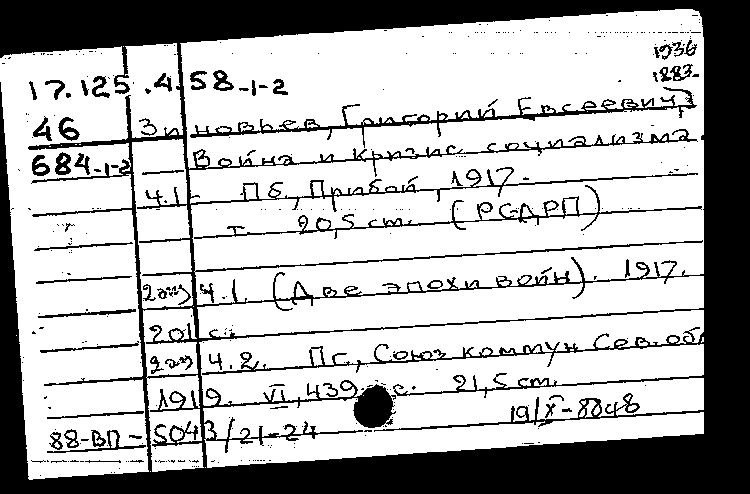 1936
17.125.4.58-1-2 1883-
46 Зиновьев, Григорий Евсеевич,
684-1-2 Война и кризис социализма.
Ч.1- Пб, Прибой, 1917-
т. 20,5 cm. (РСДРП)
2 экз Ч.1. (Две эпохи войн). 1917.
201 с.
2 экз Ч.2. Пг, Союз коммун Сев. обл
1919. VI, 439 с. 21,5 cm.
19/X-8848
88-ВП-5043/21-24